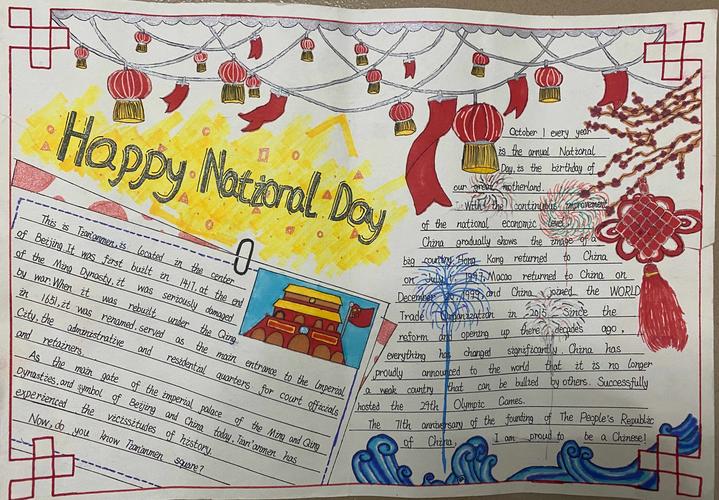 Happy National Day
This is Tian'anmen, is located in the center
of Beijing. It was first built in 1417, at the end
of the Ming Dynasty, it was seriously damaged
by war. When it was rebuilt under the Qing
in 1651, it was renamed. served as the main entrance to the Imperial
City, the administrative and residential quarters for court officials
and retainers.
As the main gate of the imperial palace of the Ming and Qing
Dynasties, and symbol of Beijing and China today, Tian'anmen has
experienced the vicissitudes of history.
Now, do you know Tian'anmen square?
October 1 every year
is the annual National
Day, is the birthday of
our great motherland.
With the continuous improvement
of the national economic level
China gradually shows the image of a
big country. Hong Kong returned to China
on July 1, 1997, Macao returned to China on
December 1999, and China joined the WORLD
Trade Organization in Since the
reform and opening up three decades ago,
everything has changed significantly China has
proudly announced to the world that it is no longer
a weak country that can be bullied by others. Successfully
hosted the 29th Olympic Games.
The 71th anniversary of the founding of The People's Republic
of China, I am proud to be a Chinese!